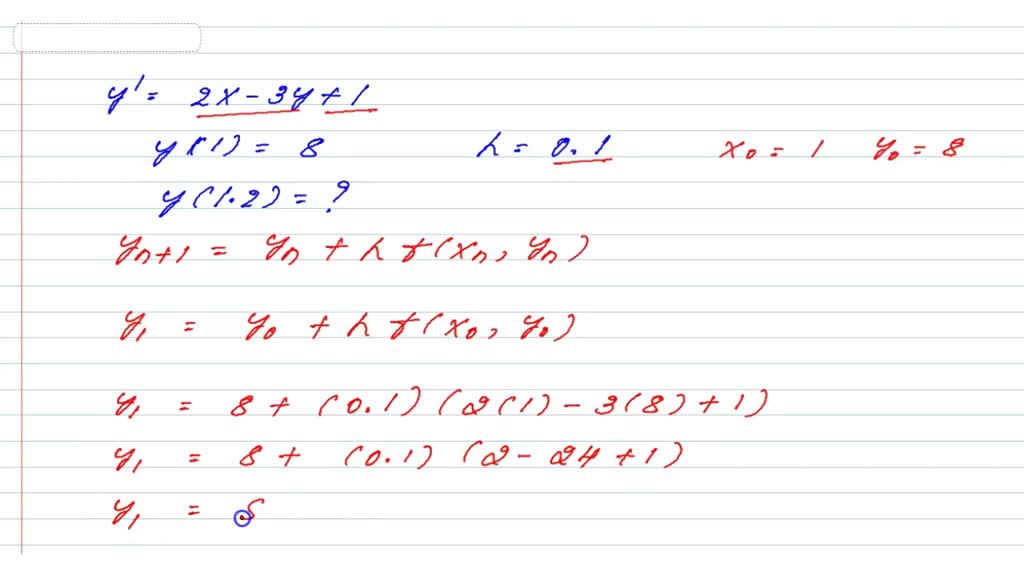 y' = 2x - 3y + 1
y(1) = 8 h = 0.1 x₀ = 1 y₀ = 8
y(1.2) = ?
yₙ₊₁ = yₙ + h f(xₙ, yₙ)
y₁ = y₀ + h f(x₀, y₀)
y₁ = 8 + (0.1) (2(1) - 3(8) + 1)
y₁ = 8 + (0.1) (2 - 24 + 1)
y₁ =